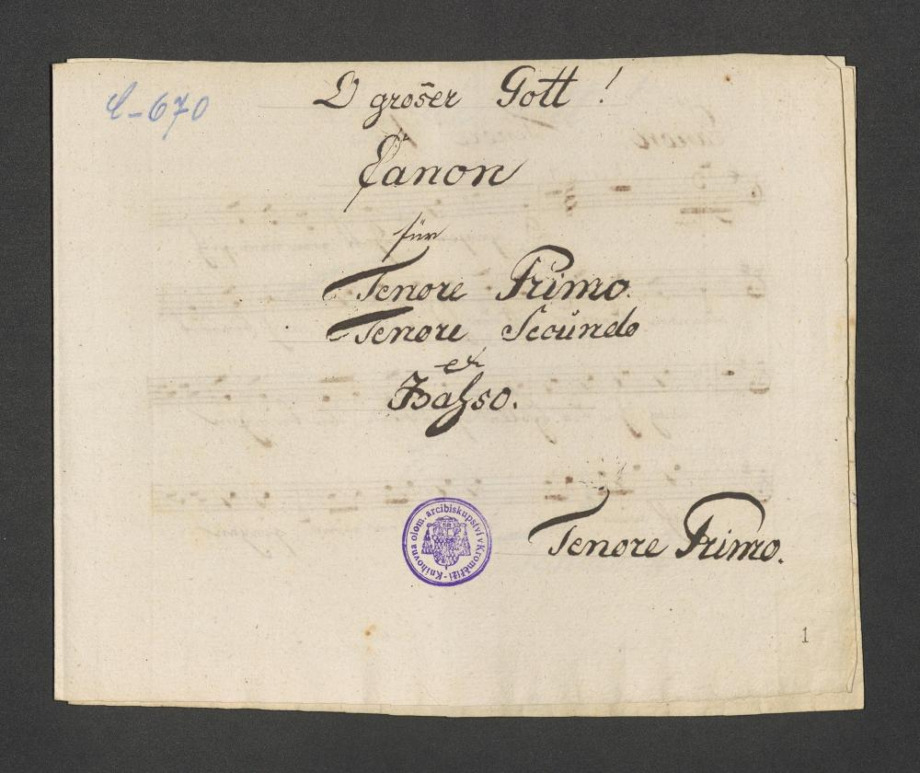 C-670
O großer Gott!
Canon
für
Tenore Primo
Tenore Secŭndo
et
Baſso.
Knihovna olom. arcibiskupství v Kroměříži -
Tenore Primo.
1